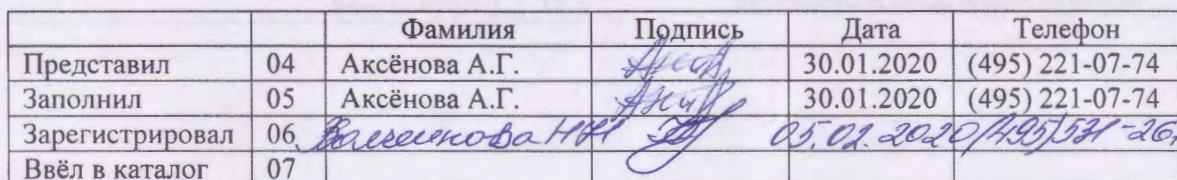 Фамилия Подпись Дата Телефон
Представил 04 Аксёнова А.Г. 30.01.2020 (495) 221-07-74
Заполнил 05 Аксёнова А.Г. 30.01.2020 (495) 221-07-74
Зарегистрировал 06 05.02.2020 (495)531-26
Ввёл в каталог 07